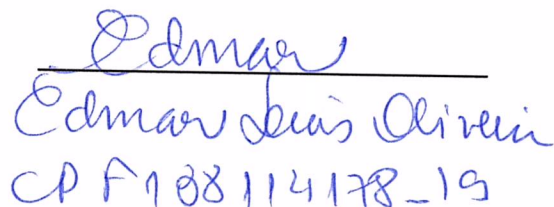 Edmar
Edmar Luis Oliveira
CPF 108114178-19